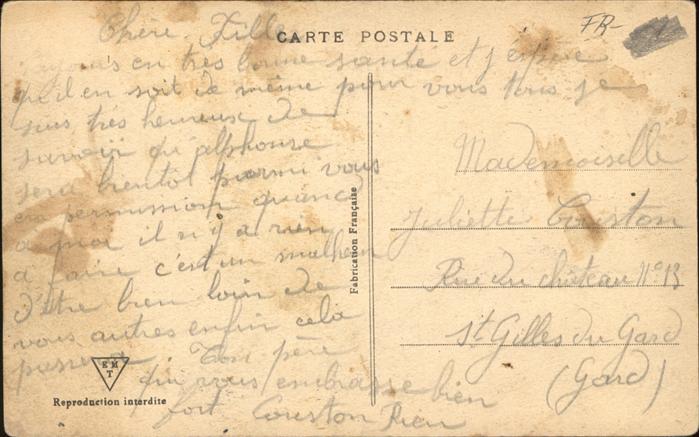 Chère Fille
CARTE POSTALE
FR-
toujours en très bonne santé et j'espère
qu'il en soit de même pour vous tous je
suis très heureux de
savoir qu'alphonse
sera bientôt parmi vous
en permission quand
a moi il n'y a rien
a faire c'est un malheur
d'être bien loin de
vous autres enfin cela
passera Ton père
qui vous embrasse bien
fort Couston
Mademoiselle
Juliette Couston
Rue du château n° 13
St Gilles du Gard
(Gard)
Fabrication Française
EMT
Reproduction interdite